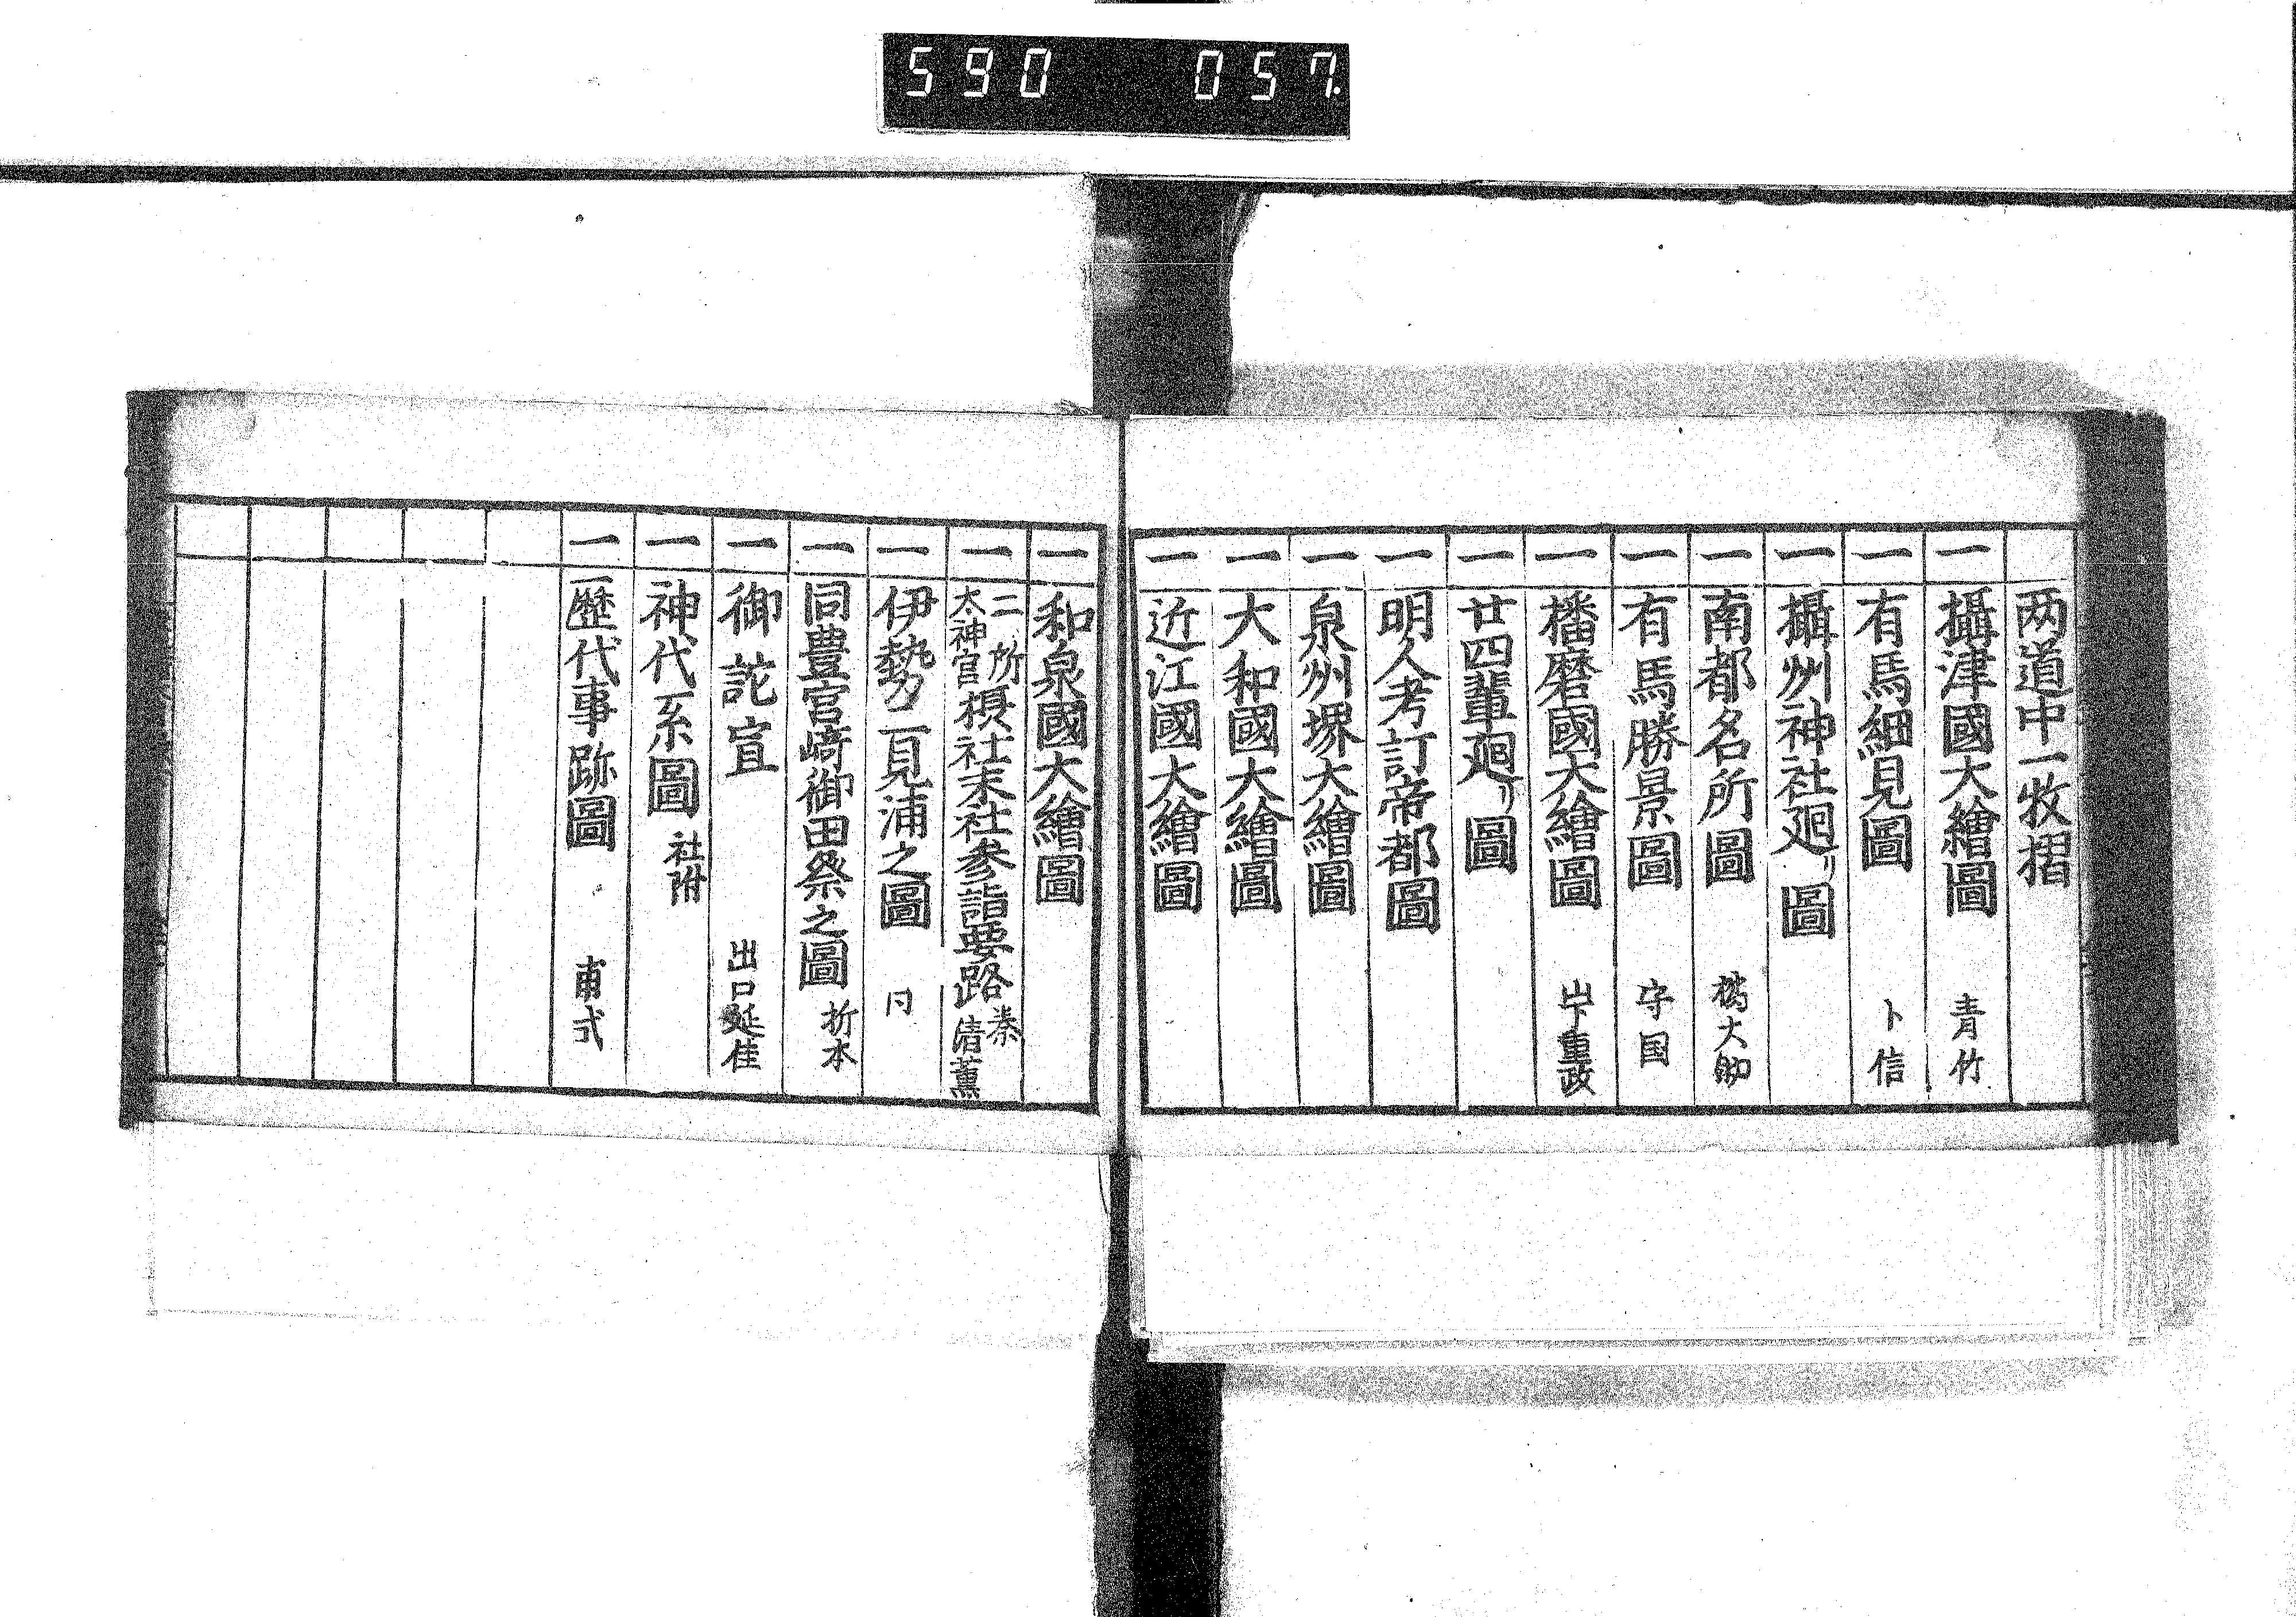 590 057.
両道中一枚摺
一 攝津國大繪圖 青竹
一 有馬細見圖 卜信
一 攝州神社廻リ圖
一 南都名所圖 橘大助
一 有馬勝景圖 守国
一 播磨國大繪圖 山下重政
一 廿四輩廻リ圖
一 明人考訂帝都圖
一 泉州堺大繪圖
一 大和國大繪圖
一 近江國大繪圖
一 和泉國大繪圖
一 二所太神宮摂社末社参詣要路 秦清薫
一 伊勢二見浦之圖 同
一 同豊宮﨑御田祭之圖 折本
一 御託宣 出口延佳
一 神代系圖 社附
一 歴代事跡圖